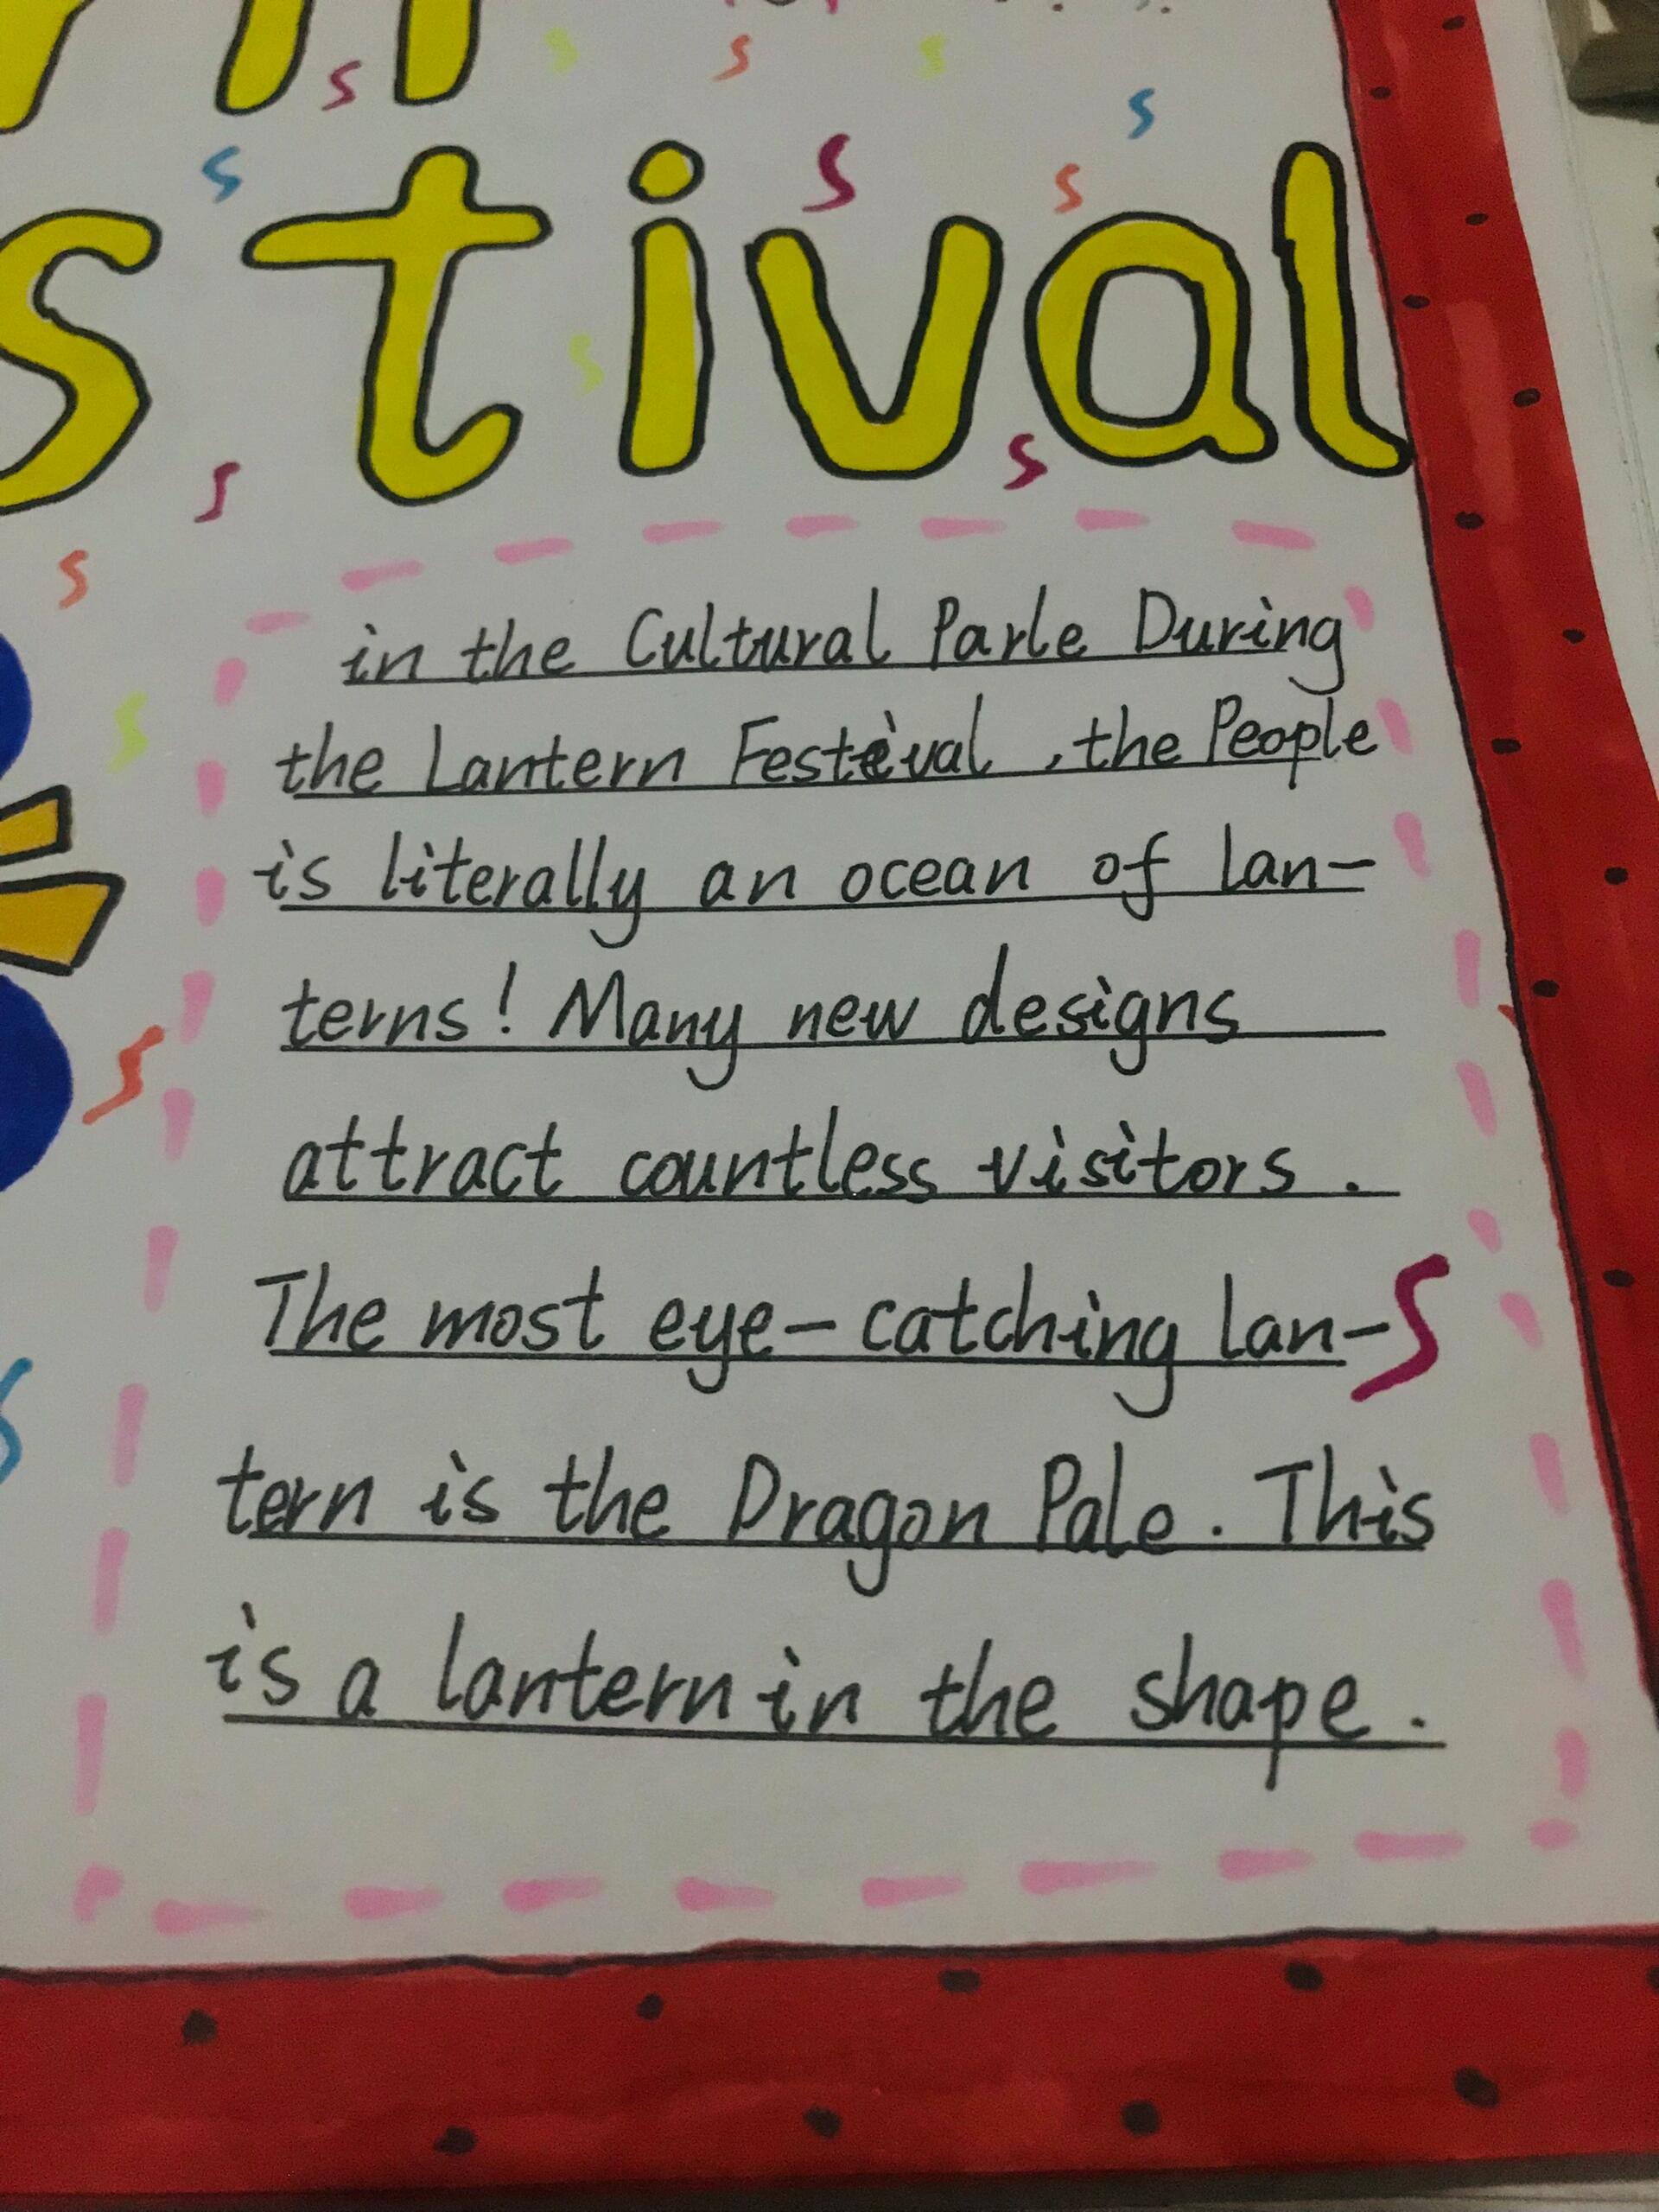 stival
in the Cultural Parle During
the Lantern Festeval , the People
is literally an ocean of lan-
terns! Many new designs
attract countless visitors.
The most eye-catching lan-
tern is the Dragon Pale. This
is a lantern in the shape.